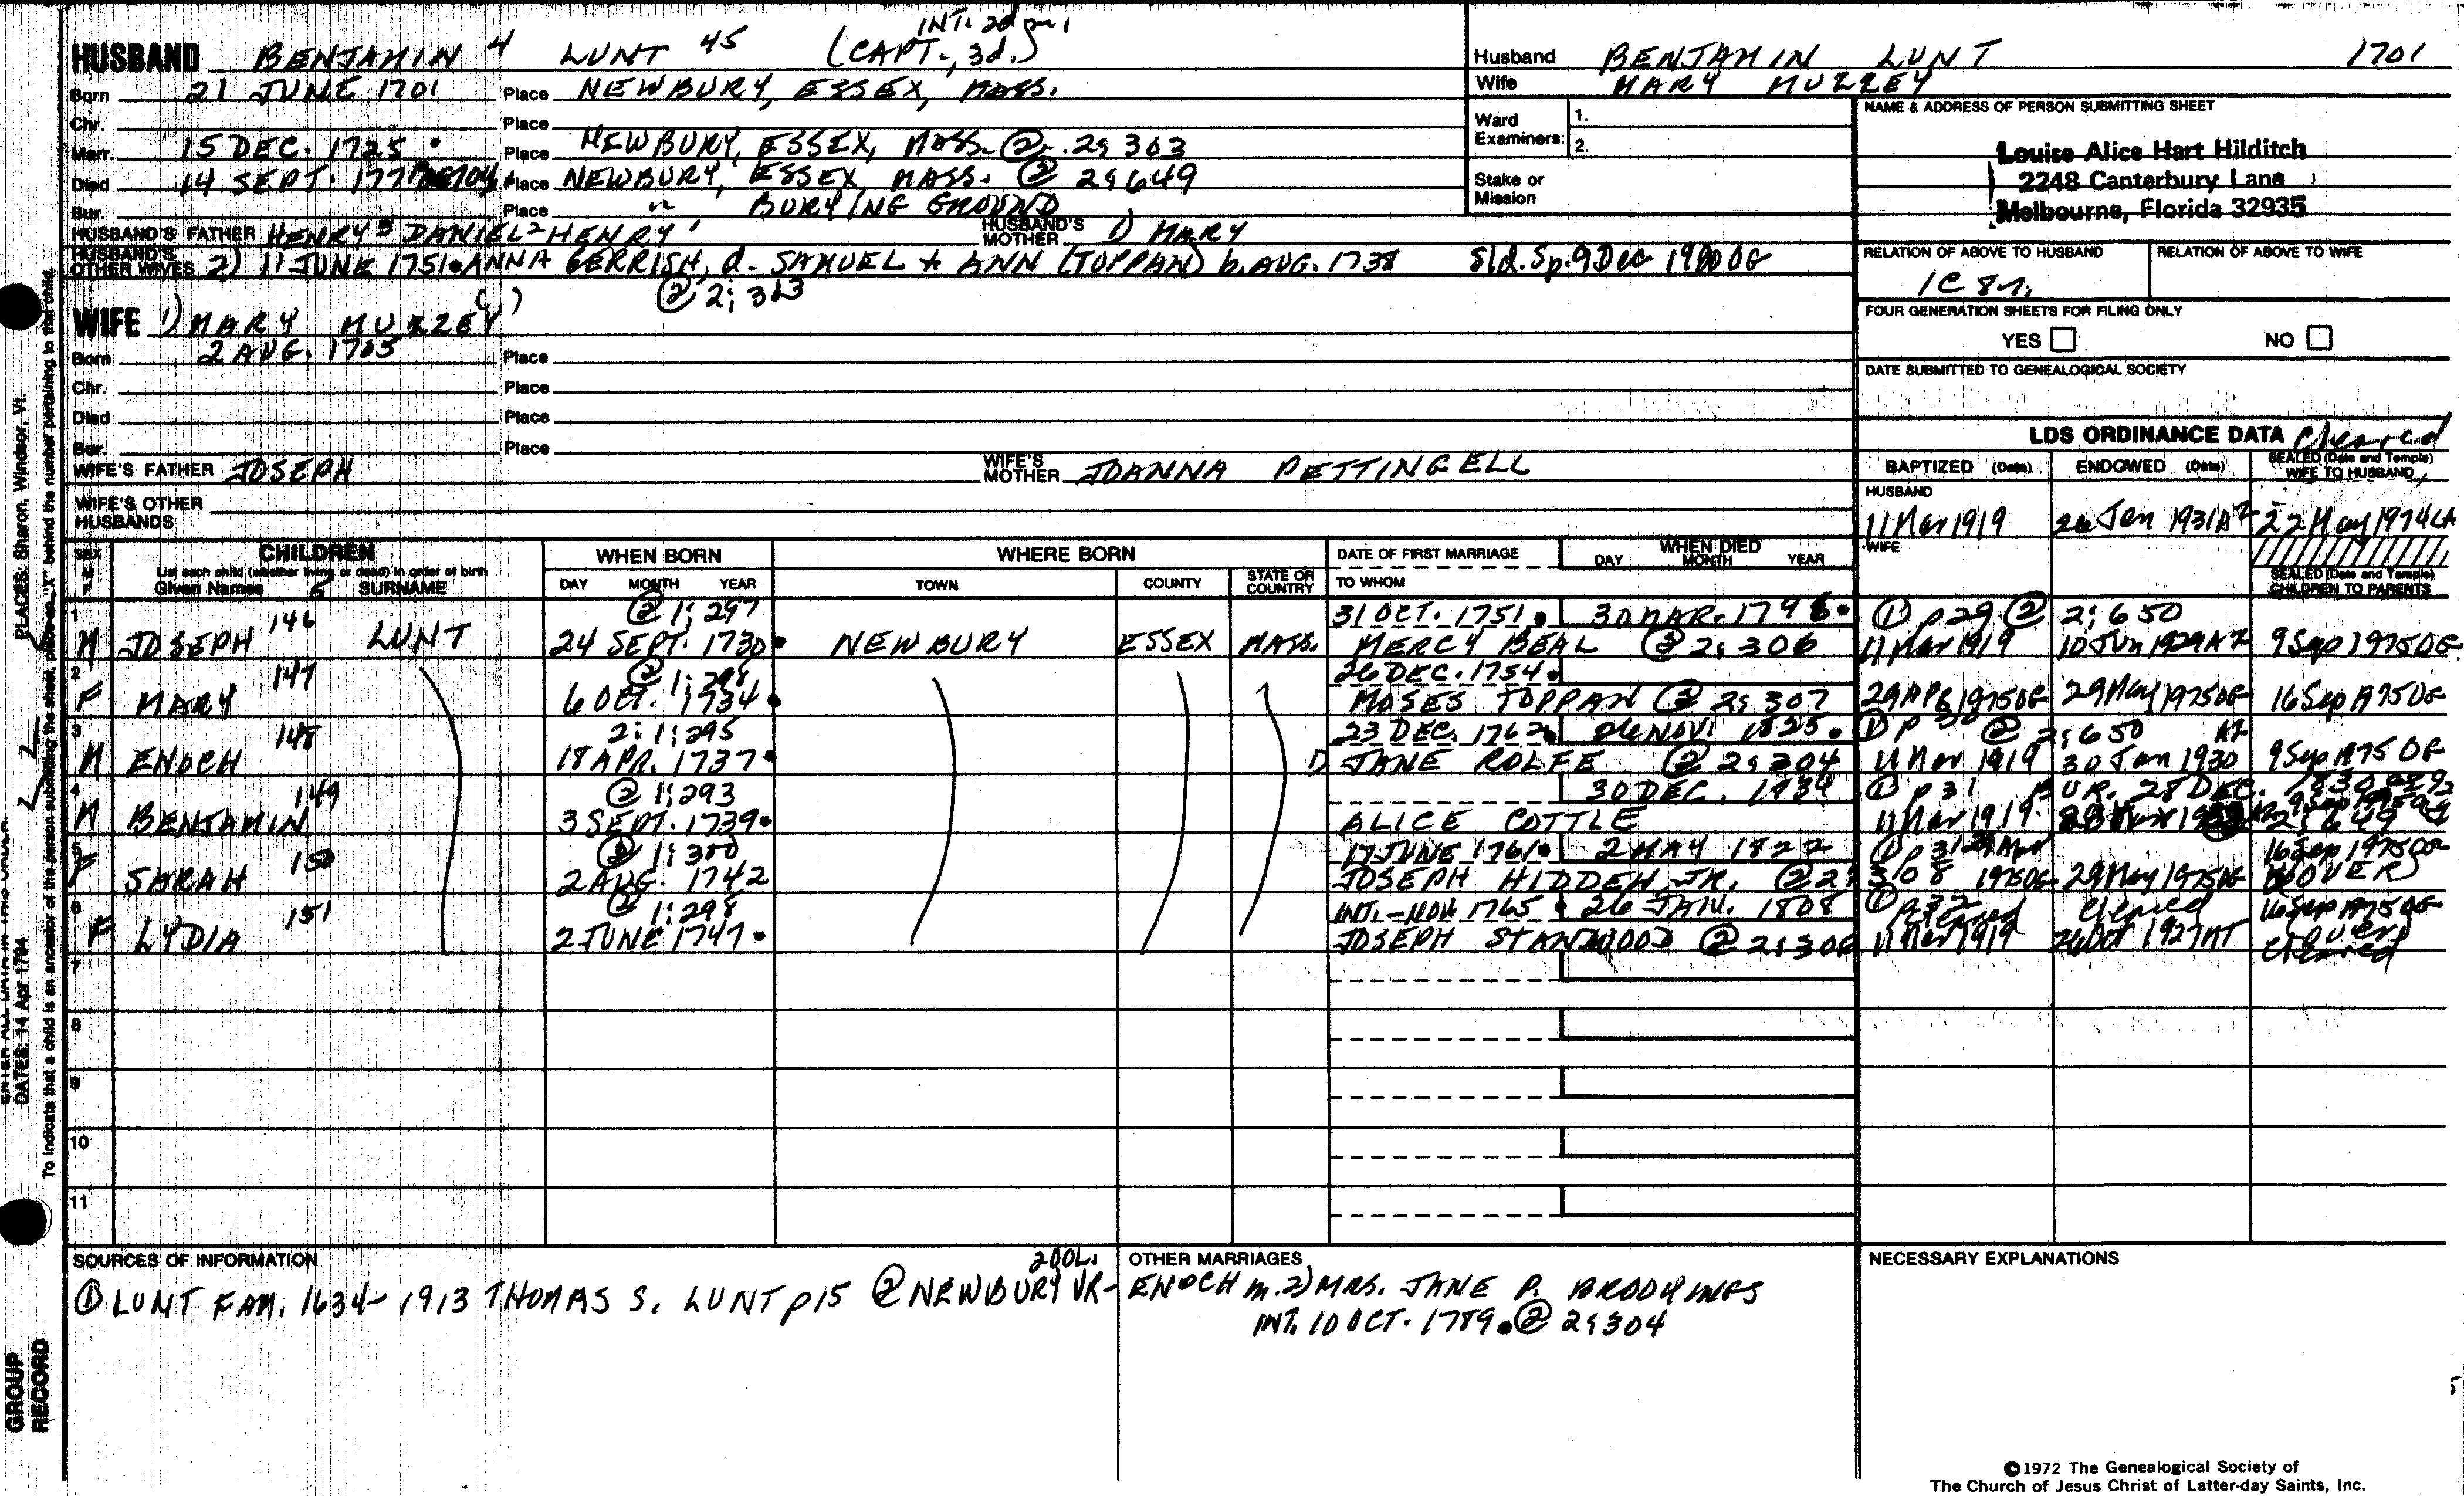 INT. 2d m.
HUSBAND BENJAMIN 4 LUNT 45 (CAPT., 3d.)
Born 21 JUNE 1701 Place NEWBURY, ESSEX, MASS.
Chr. Place
Marr. 15 DEC. 1725 Place NEWBURY, ESSEX, MASS. @ 2; 303
Died 14 SEPT. Place NEWBURY, ESSEX, MASS. @ 2; 649
Bur. Place " BURYING GROUND
HUSBAND'S FATHER HENRY 3 DANIEL 2 HENRY 1 HUSBAND'S MOTHER 1) MARY
HUSBAND'S OTHER WIVES 2) 11 JUNE 1751. ANNA GERRISH, d. SAMUEL + ANN (TOPPAN) b. AUG. 1738 Sld. Sp. 9 Dec 1980 OG
@ 2; 303
WIFE 1) MARY MUZZEY
Born 2 AUG. 1705 Place
Chr. Place
Died Place
Bur. Place
WIFE'S FATHER JOSEPH WIFE'S MOTHER JOANNA PETTINGELL
WIFE'S OTHER HUSBANDS
Husband BENJAMIN LUNT 1701
Wife MARY MUZZEY
Ward Examiners: 1.
2.
Stake or Mission
NAME & ADDRESS OF PERSON SUBMITTING SHEET
Louise Alice Hart Hilditch
2248 Canterbury Lane
Melbourne, Florida 32935
RELATION OF ABOVE TO HUSBAND RELATION OF ABOVE TO WIFE
1C 8r.
FOUR GENERATION SHEETS FOR FILING ONLY
YES NO
DATE SUBMITTED TO GENEALOGICAL SOCIETY
LDS ORDINANCE DATA Cleared
BAPTIZED (Date) ENDOWED (Date) SEALED (Date and Temple) WIFE TO HUSBAND
HUSBAND
11 Mar 1919 26 Jan 1931 AZ 22 May 1974 LA
WIFE
SEALED (Date and Temple) CHILDREN TO PARENTS
SEX M F CHILDREN WHEN BORN WHERE BORN DATE OF FIRST MARRIAGE WHEN DIED
List each child (whether living or dead) in order of birth
Given Names SURNAME DAY MONTH YEAR TOWN COUNTY STATE OR COUNTRY TO WHOM DAY MONTH YEAR
1 146 @ 1; 297 31 OCT. 1751. 30 MAR. ① p 29 @ 2; 650
M JOSEPH LUNT 24 SEPT. 1730. NEWBURY ESSEX MASS. MERCY BEAL @ 2; 306 11 Mar 1919 10 Jun 1929 AZ 9 Sep 1975 OG
2 147 @ 1; 298 26 DEC. 1754.
F MARY 6 OCT. 1734. MOSES TOPPAN @ 2; 307 29 APR 1975 OG 29 May 1975 OG 16 Sep 1975 OG
3 148 2: 1; 295 23 DEC. 1762. NOV. 1825. ① p 30 @ 2; 650 AZ
M ENOCH 18 APR. 1737. 1) JANE ROLFE @ 2; 304 11 Mar 1919 30 Jan 1930 9 Sep 1975 OG
4 149 @ 1; 293 30 DEC. ① p 31 BUR. 28 DEC. 1830
M BENJAMIN 3 SEPT. 1739. ALICE COTTLE 11 Mar 1919
5 150 @ 1; 300 17 JUNE 1761. 2 MAY 1822 ① p 31 29 Apr 16 Sep 1975 OG
F SARAH 2 AUG. 1742 JOSEPH HIDDEN, JR. @ 2; 308 1975 OG 29 May 1975 OG (OVER)
6 151 @ 1; 298 INT.-NOV. 1765. 26 JAN. 1808 ① p 32 cleared cleared 16 Sep 1975 OG
F LYDIA 2 JUNE 1747. JOSEPH STANWOOD @ 2; 306 11 Mar 1919 26 Oct 1927 AT over cleared
7
8
9
10
11
SOURCES OF INFORMATION 2 VOL. OTHER MARRIAGES NECESSARY EXPLANATIONS
① LUNT FAM. 1634-1913 THOMAS S. LUNT p 15 @ NEWBURY VR- ENOCH m. 2) MRS. JANE P. BRODHINGS
INT. 10 OCT. 1789. @ 2; 304
©1972 The Genealogical Society of
The Church of Jesus Christ of Latter-day Saints, Inc.
PLACES: Sharon, Windsor, Vt.
ENTER ALL DATA IN THIS ORDER:
DATES: 14 Apr 1794
To indicate that a child is an ancestor of the person submitting the sheet, place an "X" behind the number pertaining to that child.
GROUP
RECORD